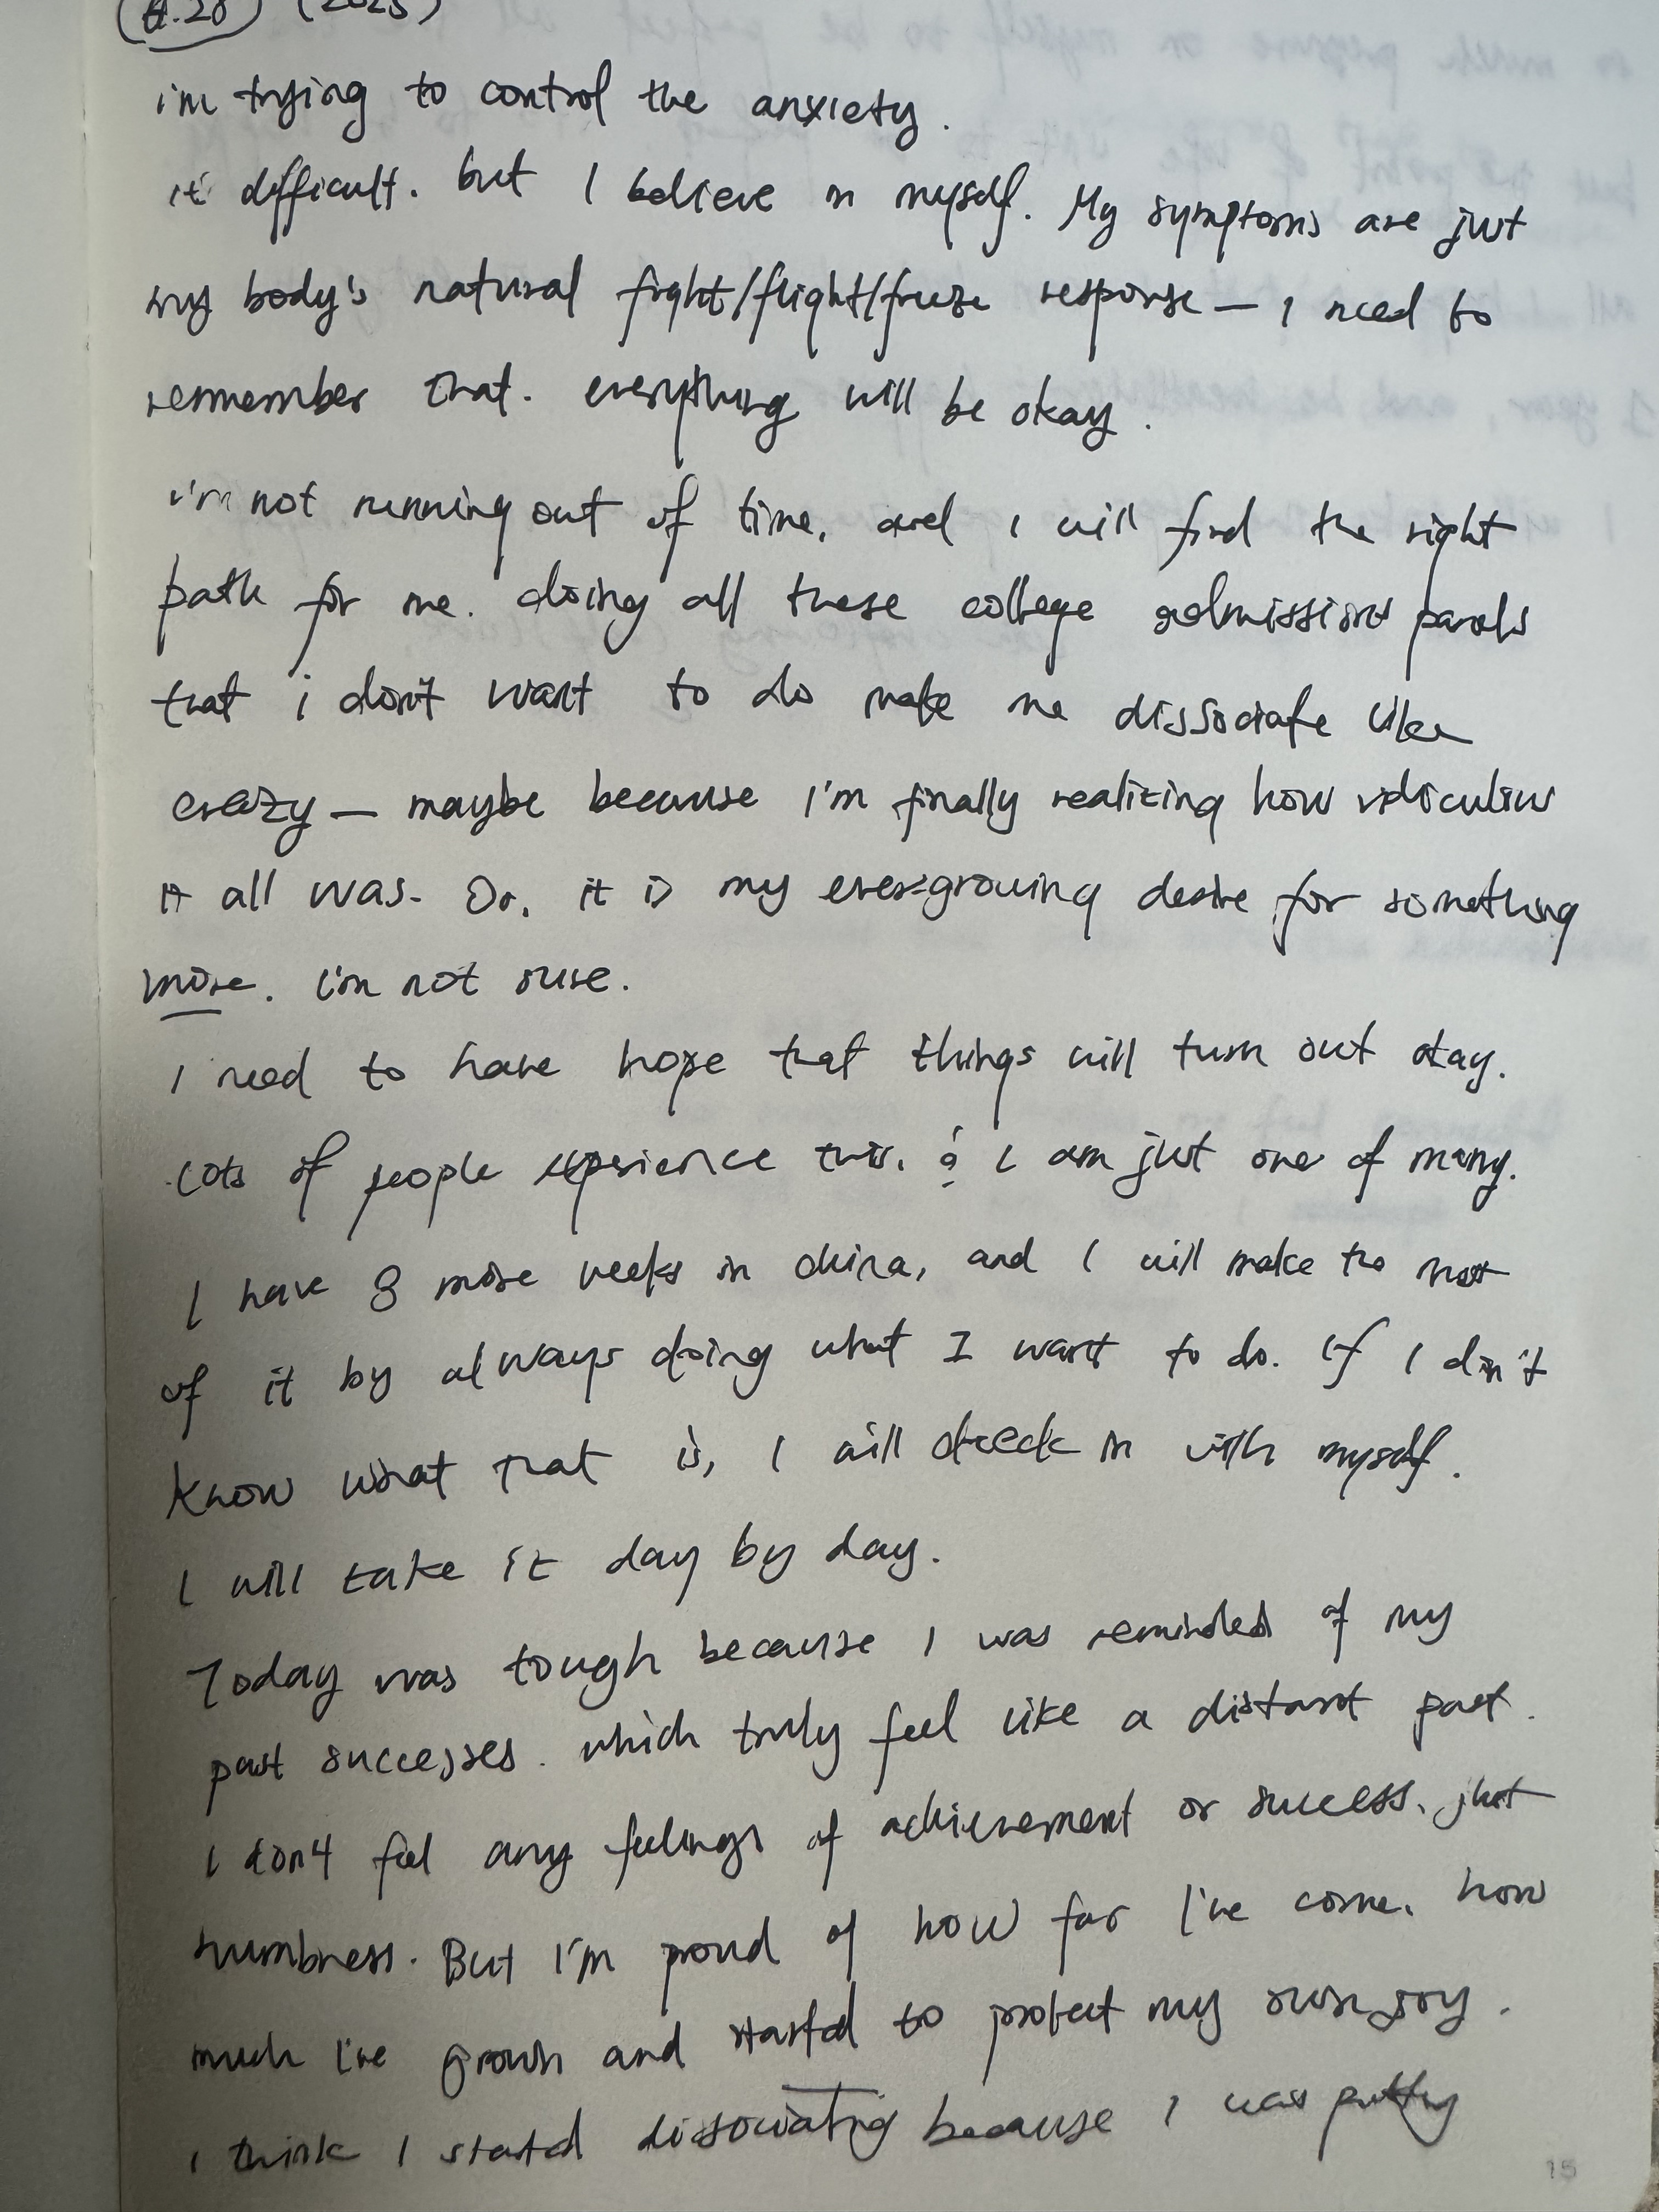 (2025)
i'm trying to control the anxiety.
it' difficult. but I believe in myself. My symptoms are just
my body's natural fight/flight/freeze response — I need to
remember that. everything will be okay.
i'm not running out of time, and I will find the right
path for me. doing all these college admissions panels
that i don't want to do make me dissociate like
crazy — maybe because I'm finally realizing how ridiculous
it all was. Or, it is my ever-growing desire for something
more. i'm not sure.
I need to have hope that things will turn out okay.
Lots of people experience this. & I am just one of many.
I have 8 more weeks in China, and I will make the most
of it by always doing what I want to do. If I don't
know what that is, I will check in with myself.
I will take it day by day.
Today was tough because I was reminded of my
past successes. which truly feel like a distant past.
I don't feel any feelings of achievement or success. just
numbness. But I'm proud of how far I've come. how
much I've grown and started to protect my own joy.
I think I started dissociating because I was putting
15